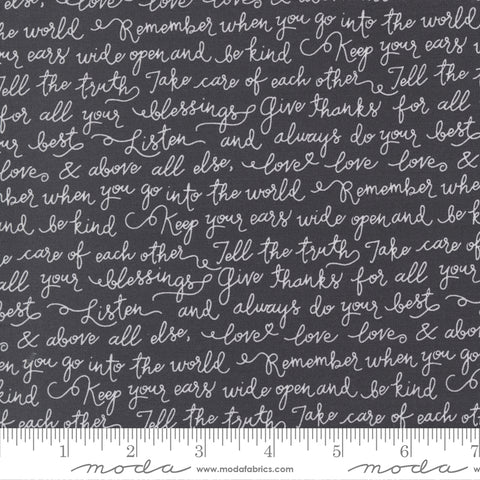 else, love love love &
the world Remember when you go into the world
ears wide open and be kind Keep your ears wide
Tell the truth Take care of each other Tell the
for all your blessings Give thanks for all
your best Listen and always do your best
love & above all else, love love love &
when you go into the world Remember when you
and be kind Keep your ears wide open and be kind
care of each other Tell the truth Take care of
all your blessings Give thanks for all your
best Listen and always do your best
& above all else, love love love & above
you go into the world Remember when you go
kind Keep your ears wide open and be kind
of each other Tell the truth Take care of each
1 2 3 4 5 6 7
moda www.modafabrics.com moda